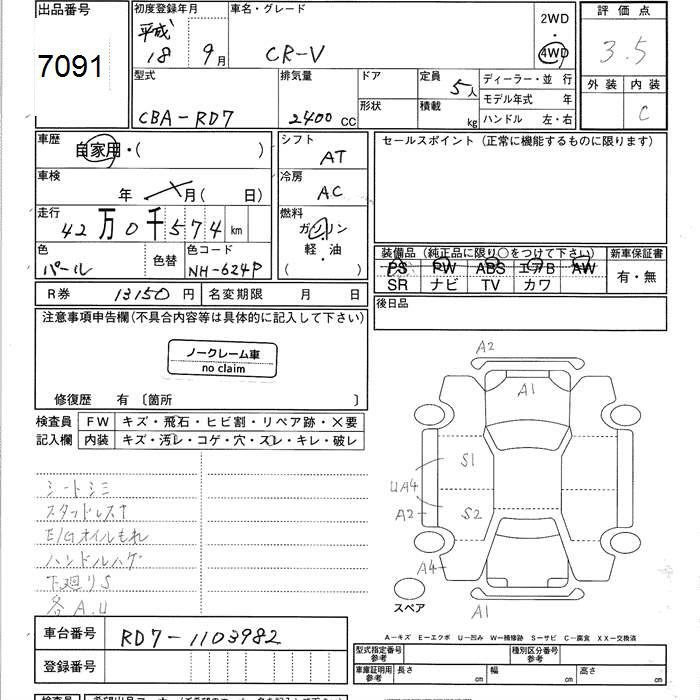 出品番号
初度登録年月
車名・グレード
2WD
評価点
7091
平成
18 9月
CR-V
4WD
3.5
型式
排気量
ドア
定員
5人
ディーラー・並 行
外装 内装
CBA-RD7
2400 CC
形状
積載
kg
モデル年式 年
ハンドル 左・右
C
車歴
自家用・( )
シフト
AT
セールスポイント (正常に機能するものに限ります)
車検
年 月( 日)
冷房
AC
走行
42万0千574 km
燃料
ガソリン
軽・油
( )
色
パール
色替
色コード
NH-624P
装備品 (純正品に限り○をつけて下さい)
新車保証書
PS PW ABS エアB AW
SR ナビ TV カワ
有・無
R券 13150円
名変期限 月 日
後日品
注意事項申告欄(不具合内容等は具体的に記入して下さい)
ノークレーム車
no claim
修復歴 有 〔箇所 〕
検査員
記入欄
FW キズ・飛石・ヒビ割・リペア跡・×要
内装 キズ・汚レ・コゲ・穴・スレ・キレ・破レ
シートシミ
スタッドレス↑
E/Gオイルもれ
ハンドルハゲ
下廻りS
各A.U
A2
A1
S1
UA4
A2
S2
A4
A1
スペア
A-キズ E-エクボ U-凹み W-補修跡 S-サビ C-腐食 XX-交換済
車台番号
RD7-1103982
登録番号
型式指定番号
参考
種別区分番号
参考
車庫証明用
参考
長さ cm
幅 cm
高さ cm